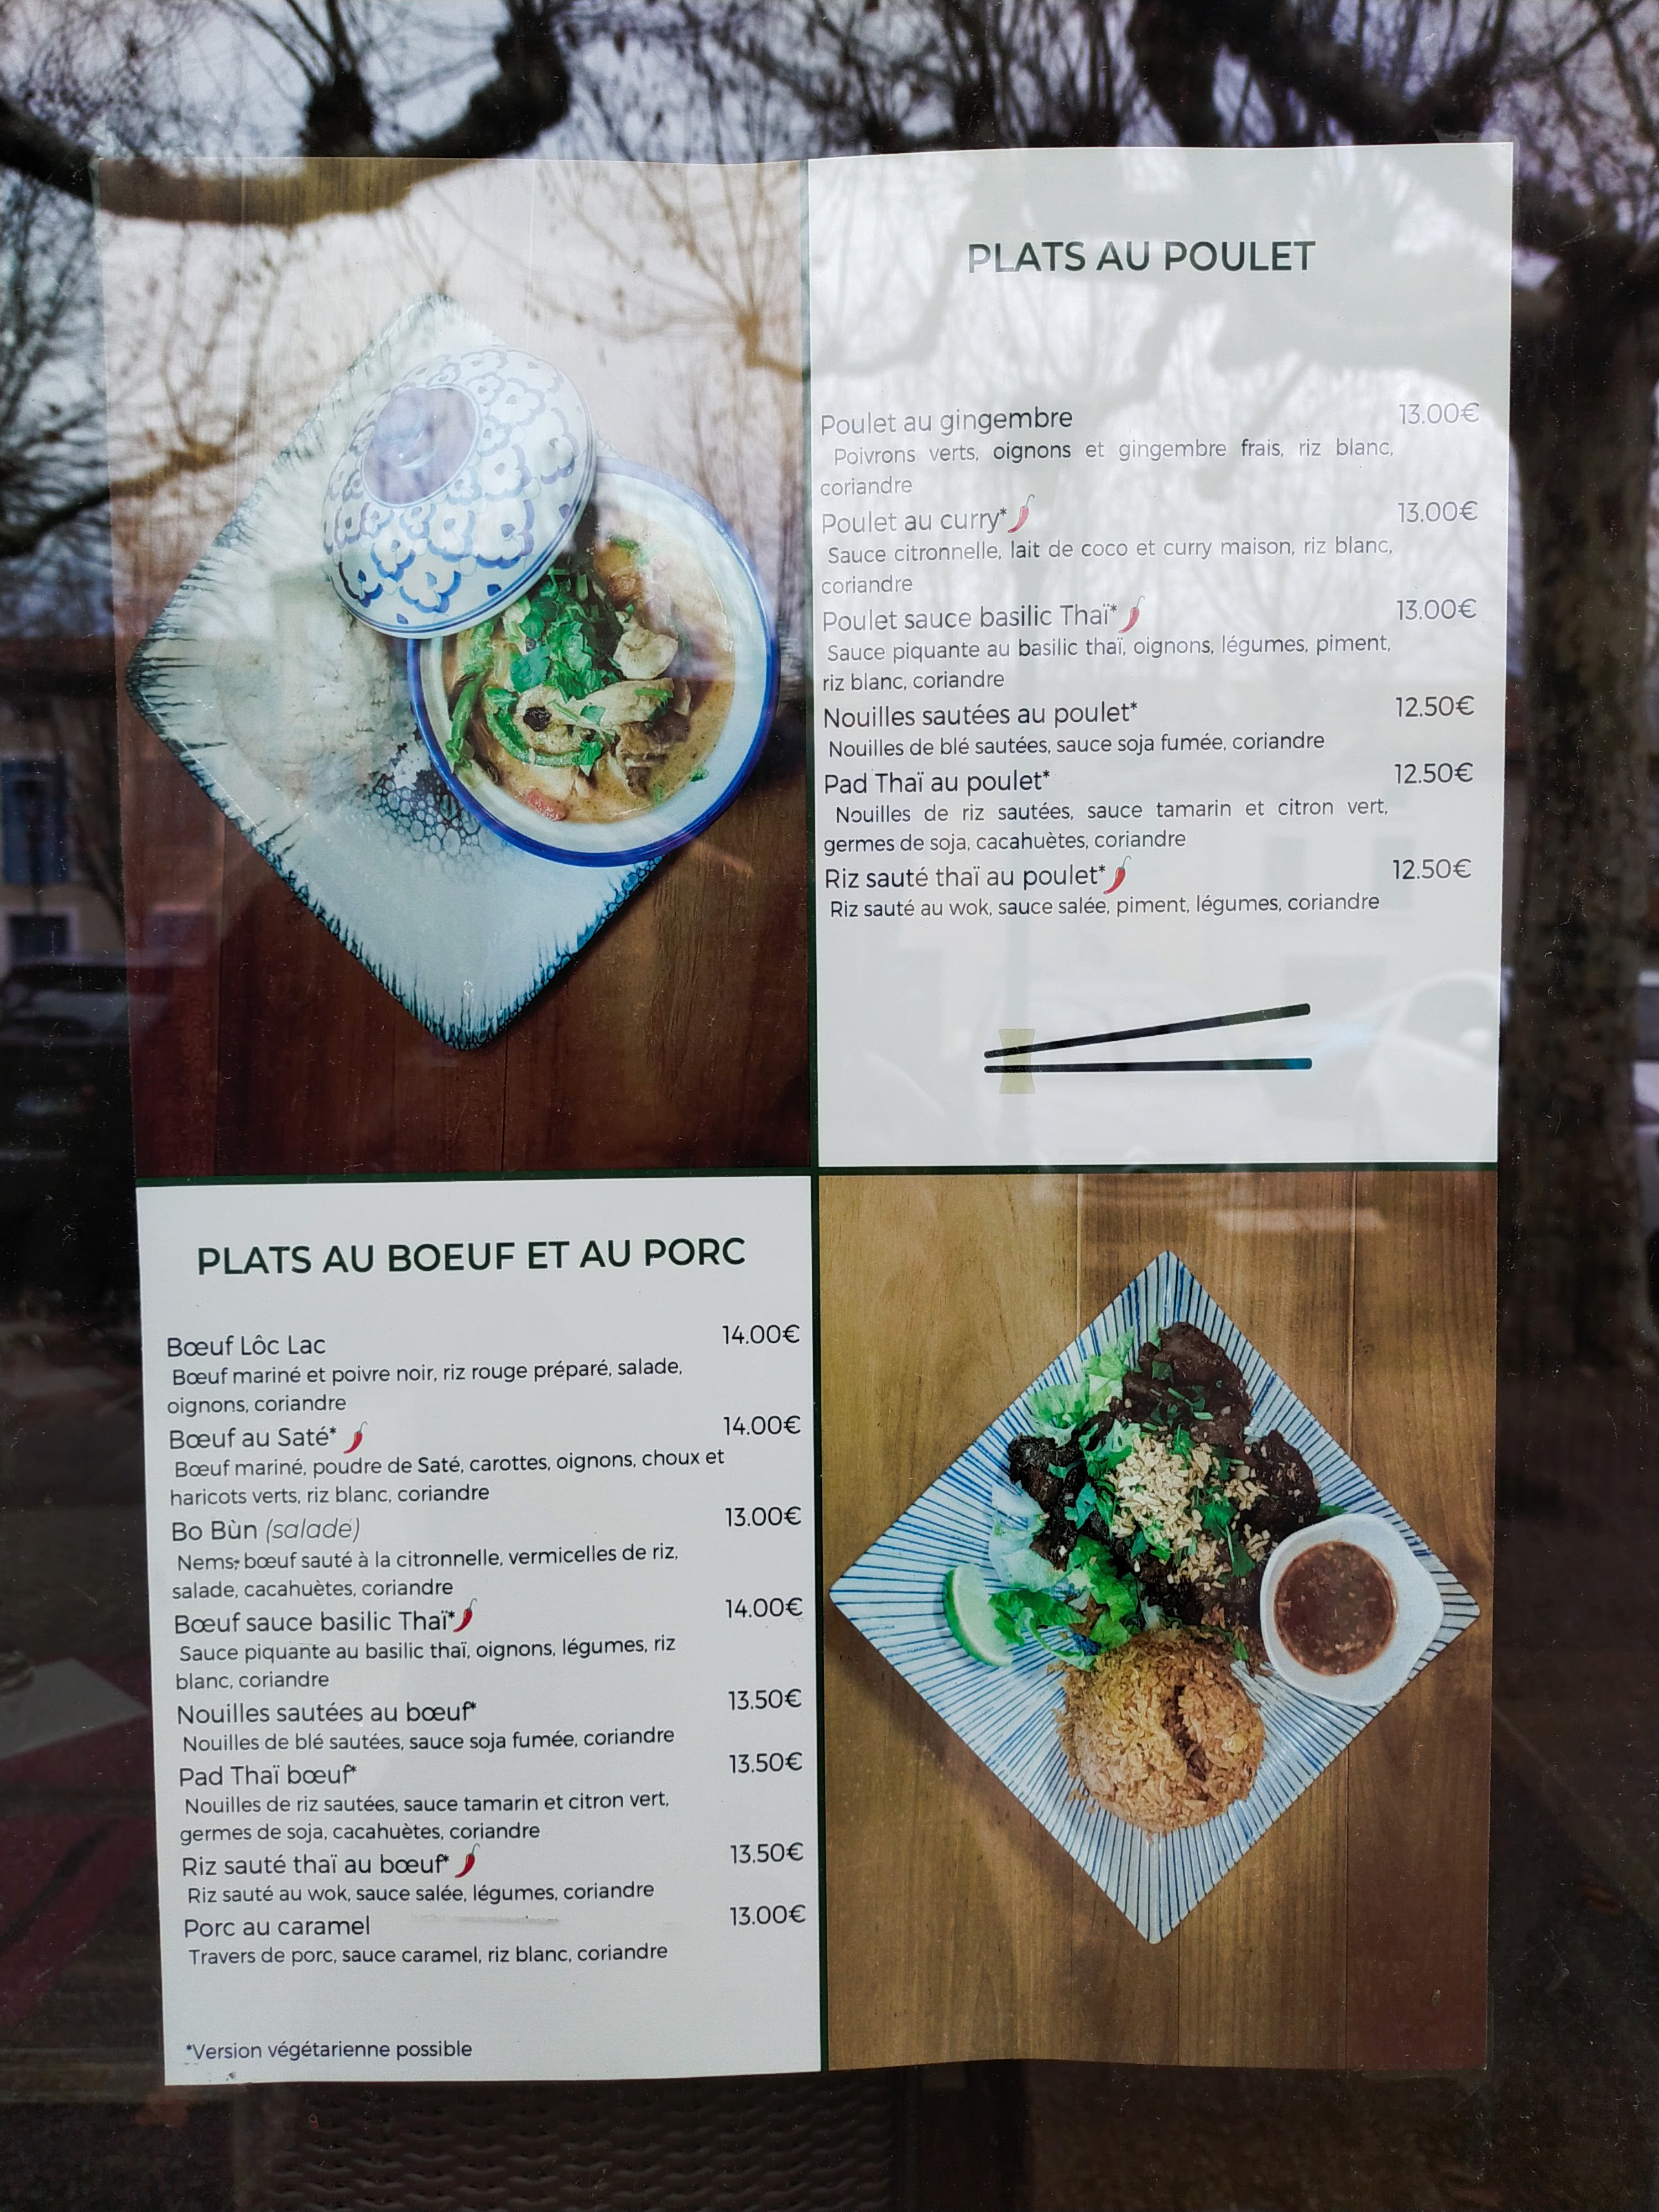 PLATS AU POULET
Poulet au gingembre 13.00€
Poivrons verts, oignons et gingembre frais, riz blanc,
coriandre
Poulet au curry* 13.00€
Sauce citronnelle, lait de coco et curry maison, riz blanc,
coriandre
Poulet sauce basilic Thaï* 13.00€
Sauce piquante au basilic thaï, oignons, légumes, piment,
riz blanc, coriandre
Nouilles sautées au poulet* 12.50€
Nouilles de blé sautées, sauce soja fumée, coriandre
Pad Thaï au poulet* 12.50€
Nouilles de riz sautées, sauce tamarin et citron vert,
germes de soja, cacahuètes, coriandre
Riz sauté thaï au poulet* 12.50€
Riz sauté au wok, sauce salée, piment, légumes, coriandre
PLATS AU BOEUF ET AU PORC
Bœuf Lôc Lac 14.00€
Bœuf mariné et poivre noir, riz rouge préparé, salade,
oignons, coriandre
Bœuf au Saté* 14.00€
Bœuf mariné, poudre de Saté, carottes, oignons, choux et
haricots verts, riz blanc, coriandre
Bo Bùn (salade) 13.00€
Nems, bœuf sauté à la citronnelle, vermicelles de riz,
salade, cacahuètes, coriandre
Bœuf sauce basilic Thaï* 14.00€
Sauce piquante au basilic thaï, oignons, légumes, riz
blanc, coriandre
Nouilles sautées au bœuf* 13.50€
Nouilles de blé sautées, sauce soja fumée, coriandre
Pad Thaï bœuf* 13.50€
Nouilles de riz sautées, sauce tamarin et citron vert,
germes de soja, cacahuètes, coriandre
Riz sauté thaï au bœuf* 13.50€
Riz sauté au wok, sauce salée, légumes, coriandre
Porc au caramel 13.00€
Travers de porc, sauce caramel, riz blanc, coriandre
*Version végétarienne possible